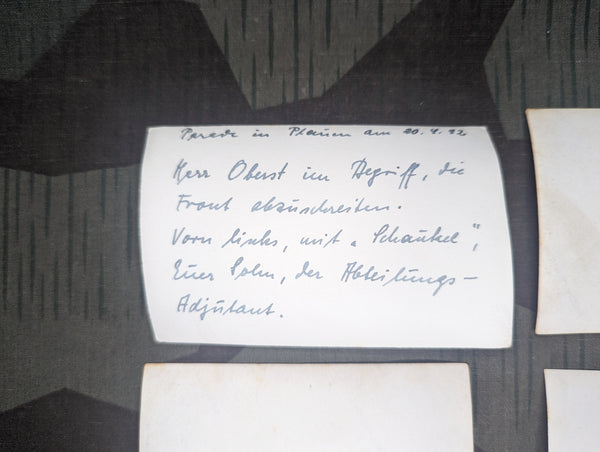 Parade in Plauen am 20.4.42
Herr Oberst im Begriff, die
Front abzuschreiten.
Vorn links, mit „Schaukel“,
Euer Sohn, der Abteilungs-
Adjutant.